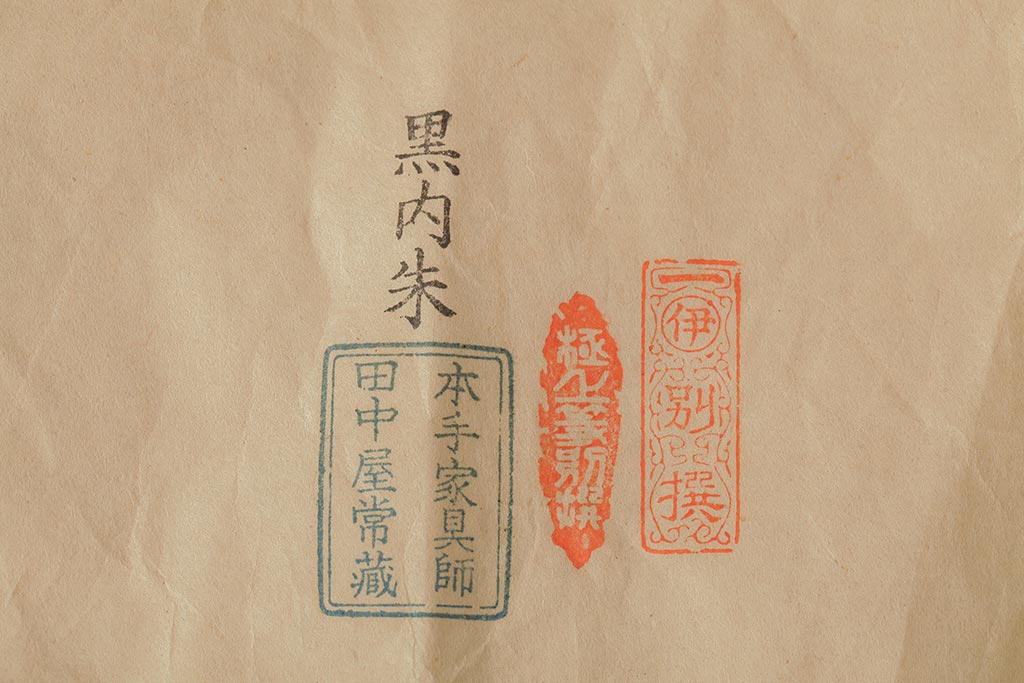 伊
別撰
極上
黒内朱
本手家具師
田中屋常藏